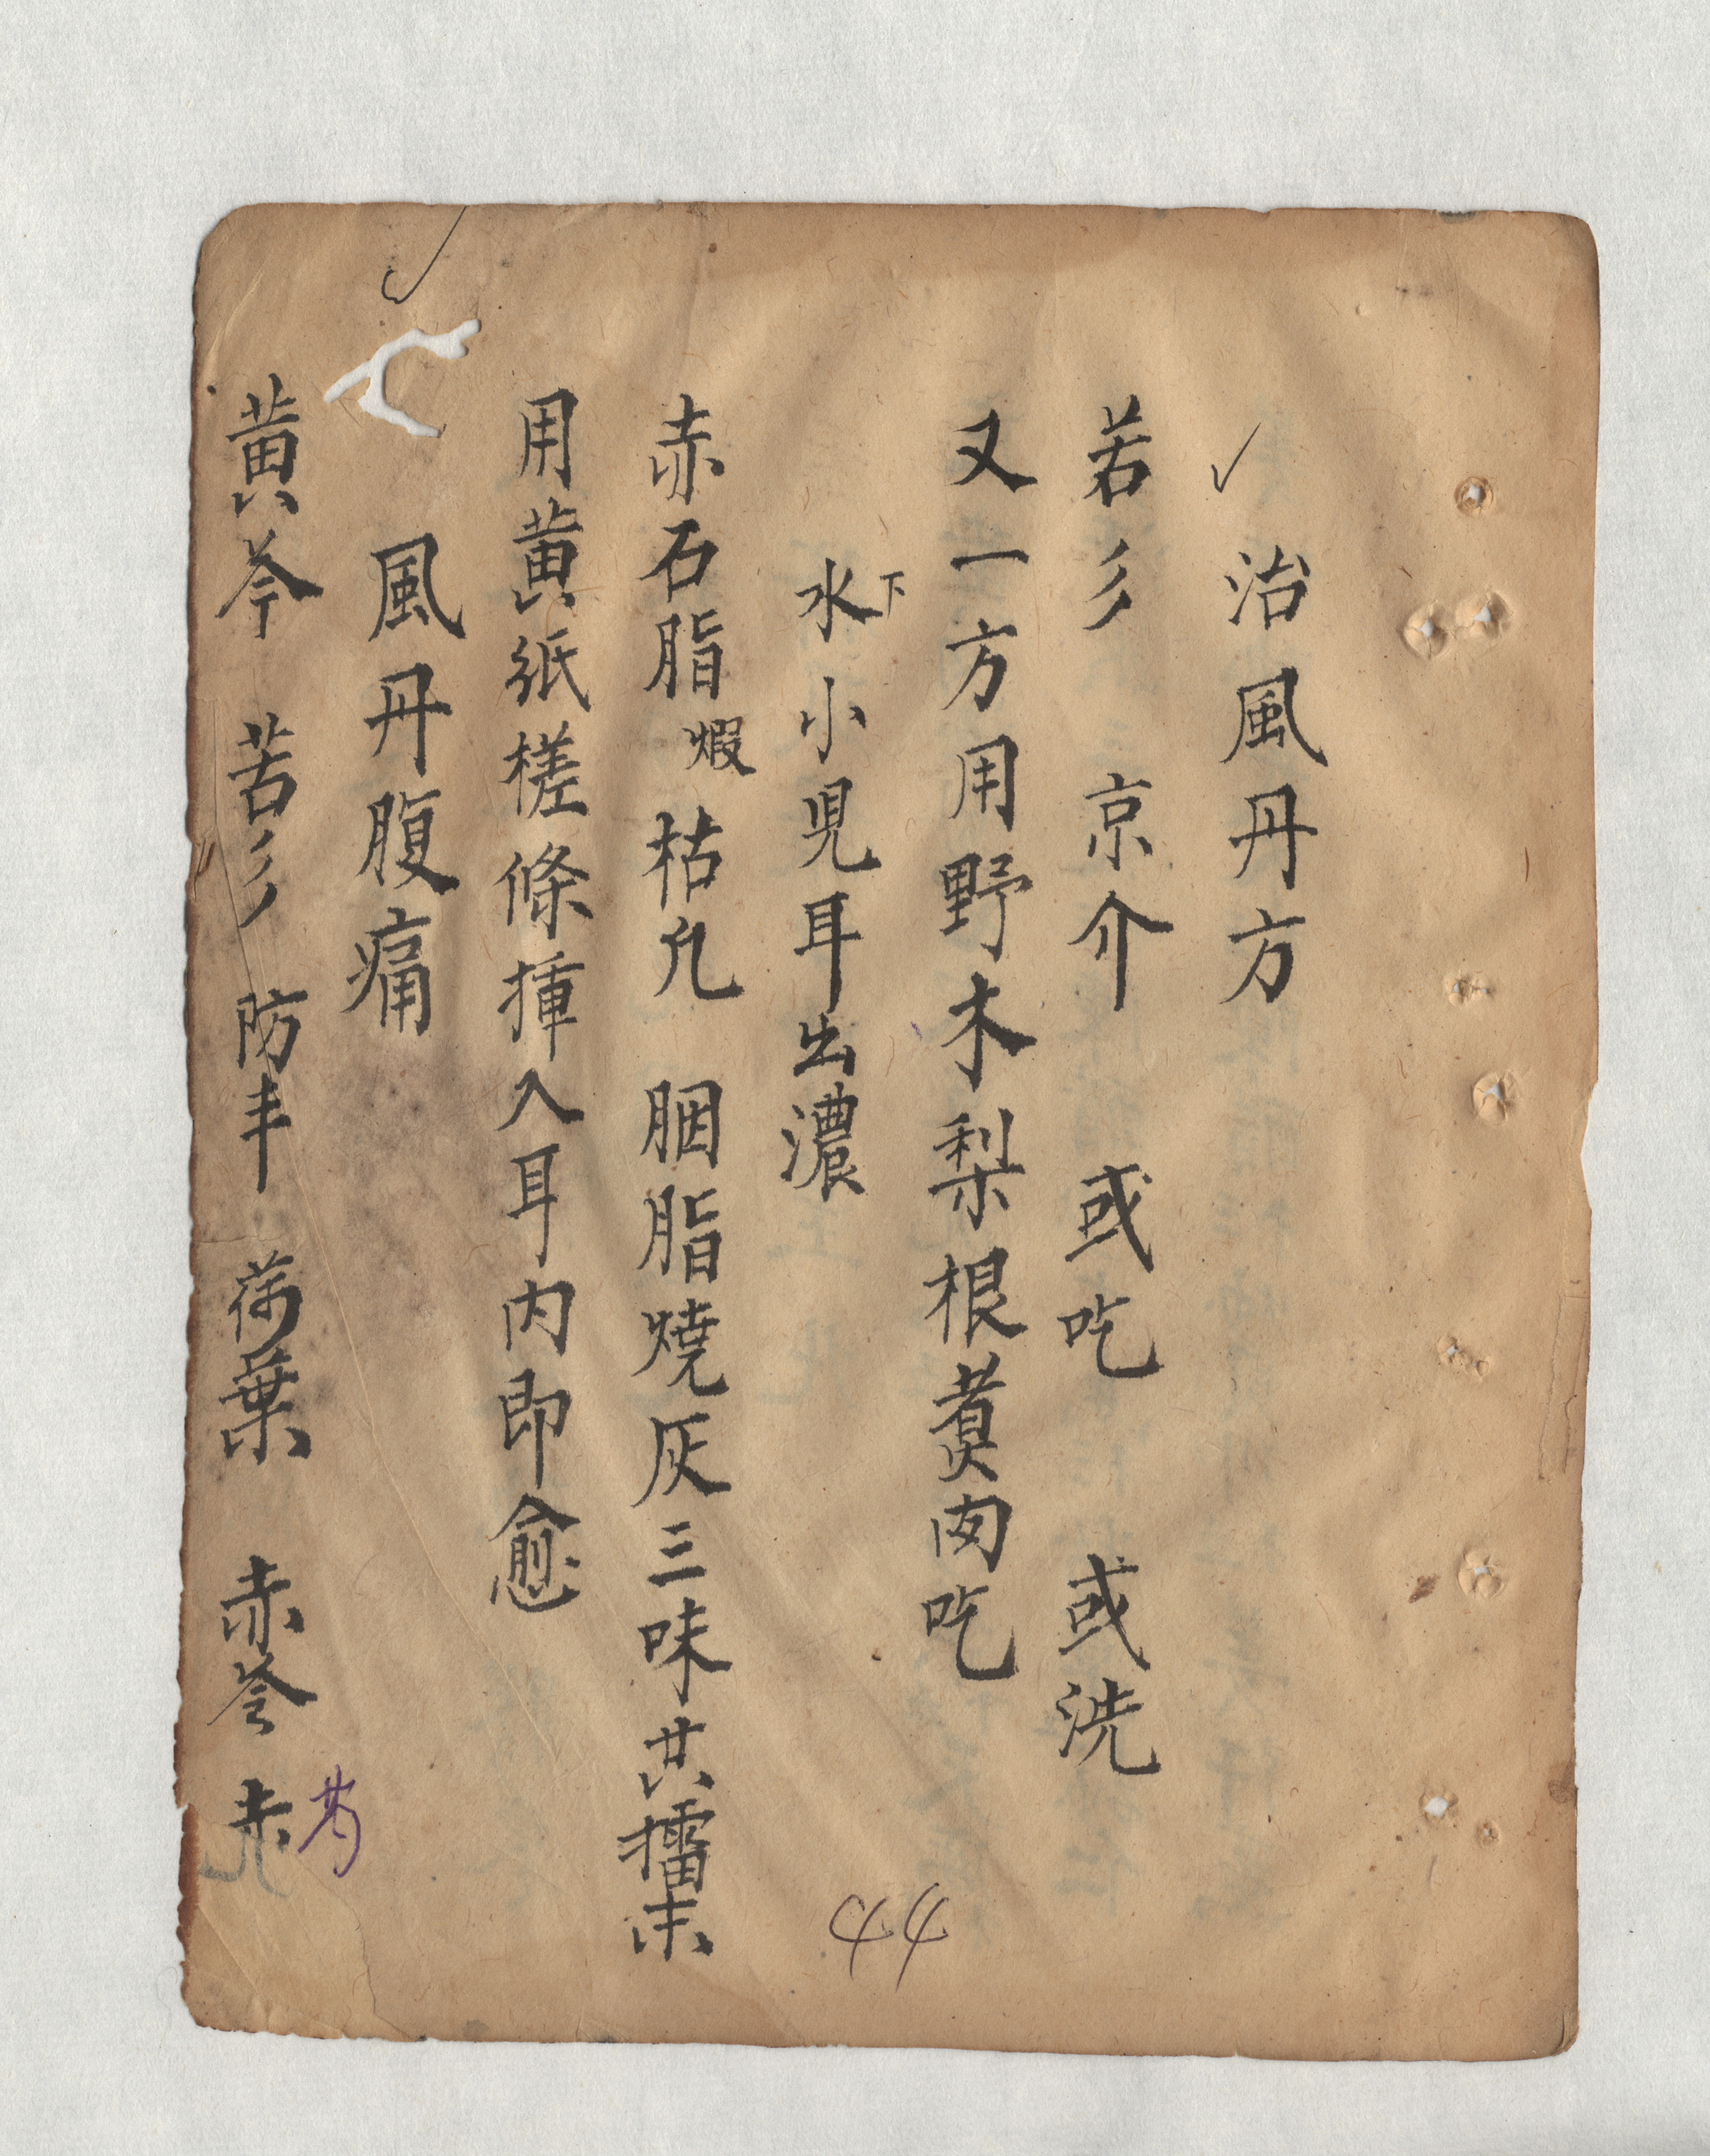 治風丹方
若彡 京介 或吃 或洗
又一方用野木梨根煑肉吃
水下小児耳出濃
赤石脂煆 枯凢 胭脂燒灰三味共擂末
用黄紙槎條揷入耳内即愈
風丹腹痛
黄芩 苦彡 防丰 荷葉 赤苓 赤芍
44